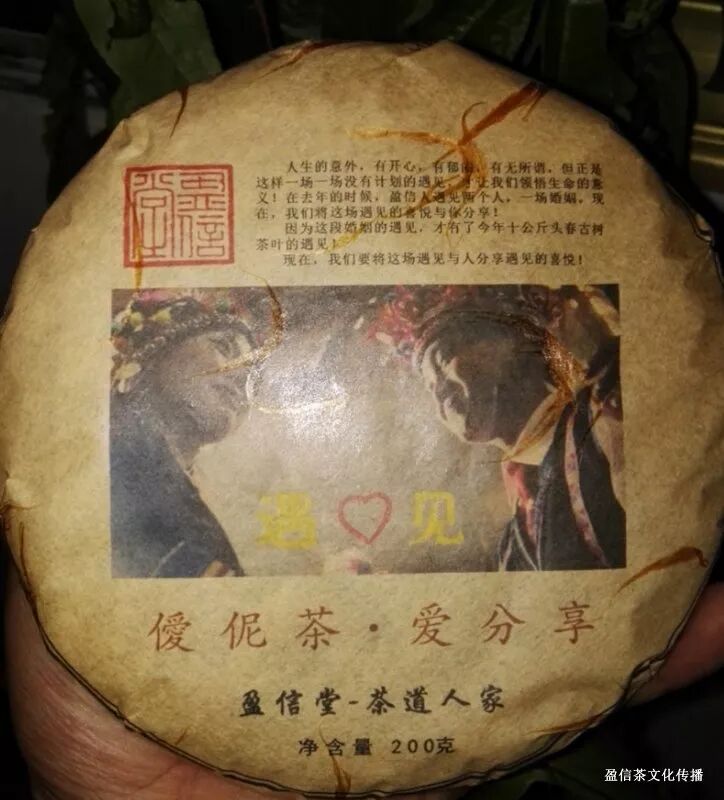 盈信堂
人生的意外，有开心，有郁闷，有无所谓，但正是
这样一场一场没有计划的遇见，才让我们领悟生命的意
义！在去年的时候，盈信人遇见两个人，一场婚姻。现
在，我们将这场遇见的喜悦与你分享！
因为这段婚姻的遇见，才有了今年十公斤头春古树
茶叶的遇见！
现在，我们要将这场遇见与人分享遇见的喜悦！
遇见
僾伲茶·爱分享
盈信堂-茶道人家
净含量 200克
盈信茶文化传播